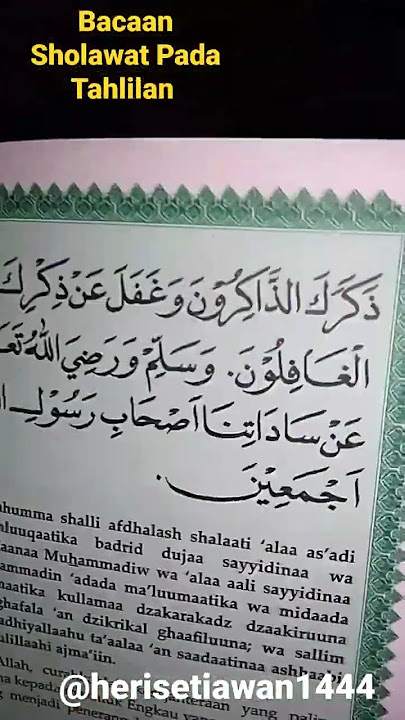 Bacaan
Sholawat Pada
Tahlilan
ذَكَرَكَ الذَّاكِرُوْنَ وَغَفَلَ عَنْ ذِكْرِكَ
الْغَافِلُوْنَ. وَسَلِّمْ وَرَضِيَ اللهُ تَعَا
عَنْ سَادَاتِنَا اَصْحَابِ رَسُوْلِ
اَجْمَعِيْنَ.
ahumma shalli afdhalash shalaati ‘alaa as’adi
hluuqaatika badrid dujaa sayyidinaa wa
laanaa Muhammadiw wa ‘alaa aali sayyidinaa
ammadin ‘adada ma’luumaatika wa midaada
maatika kullamaa dzakarakadz dzaakiruuna
ghafala ‘an dzikrikal ghaafiluuna; wa sallim
adhiyallaahu ta’aalaa ‘an saadaatinaa ashhaabi
ulillaahi ajma’iin.
Allah, yang paling
kepada Engkau yang
menjadi
@herisetiawan1444